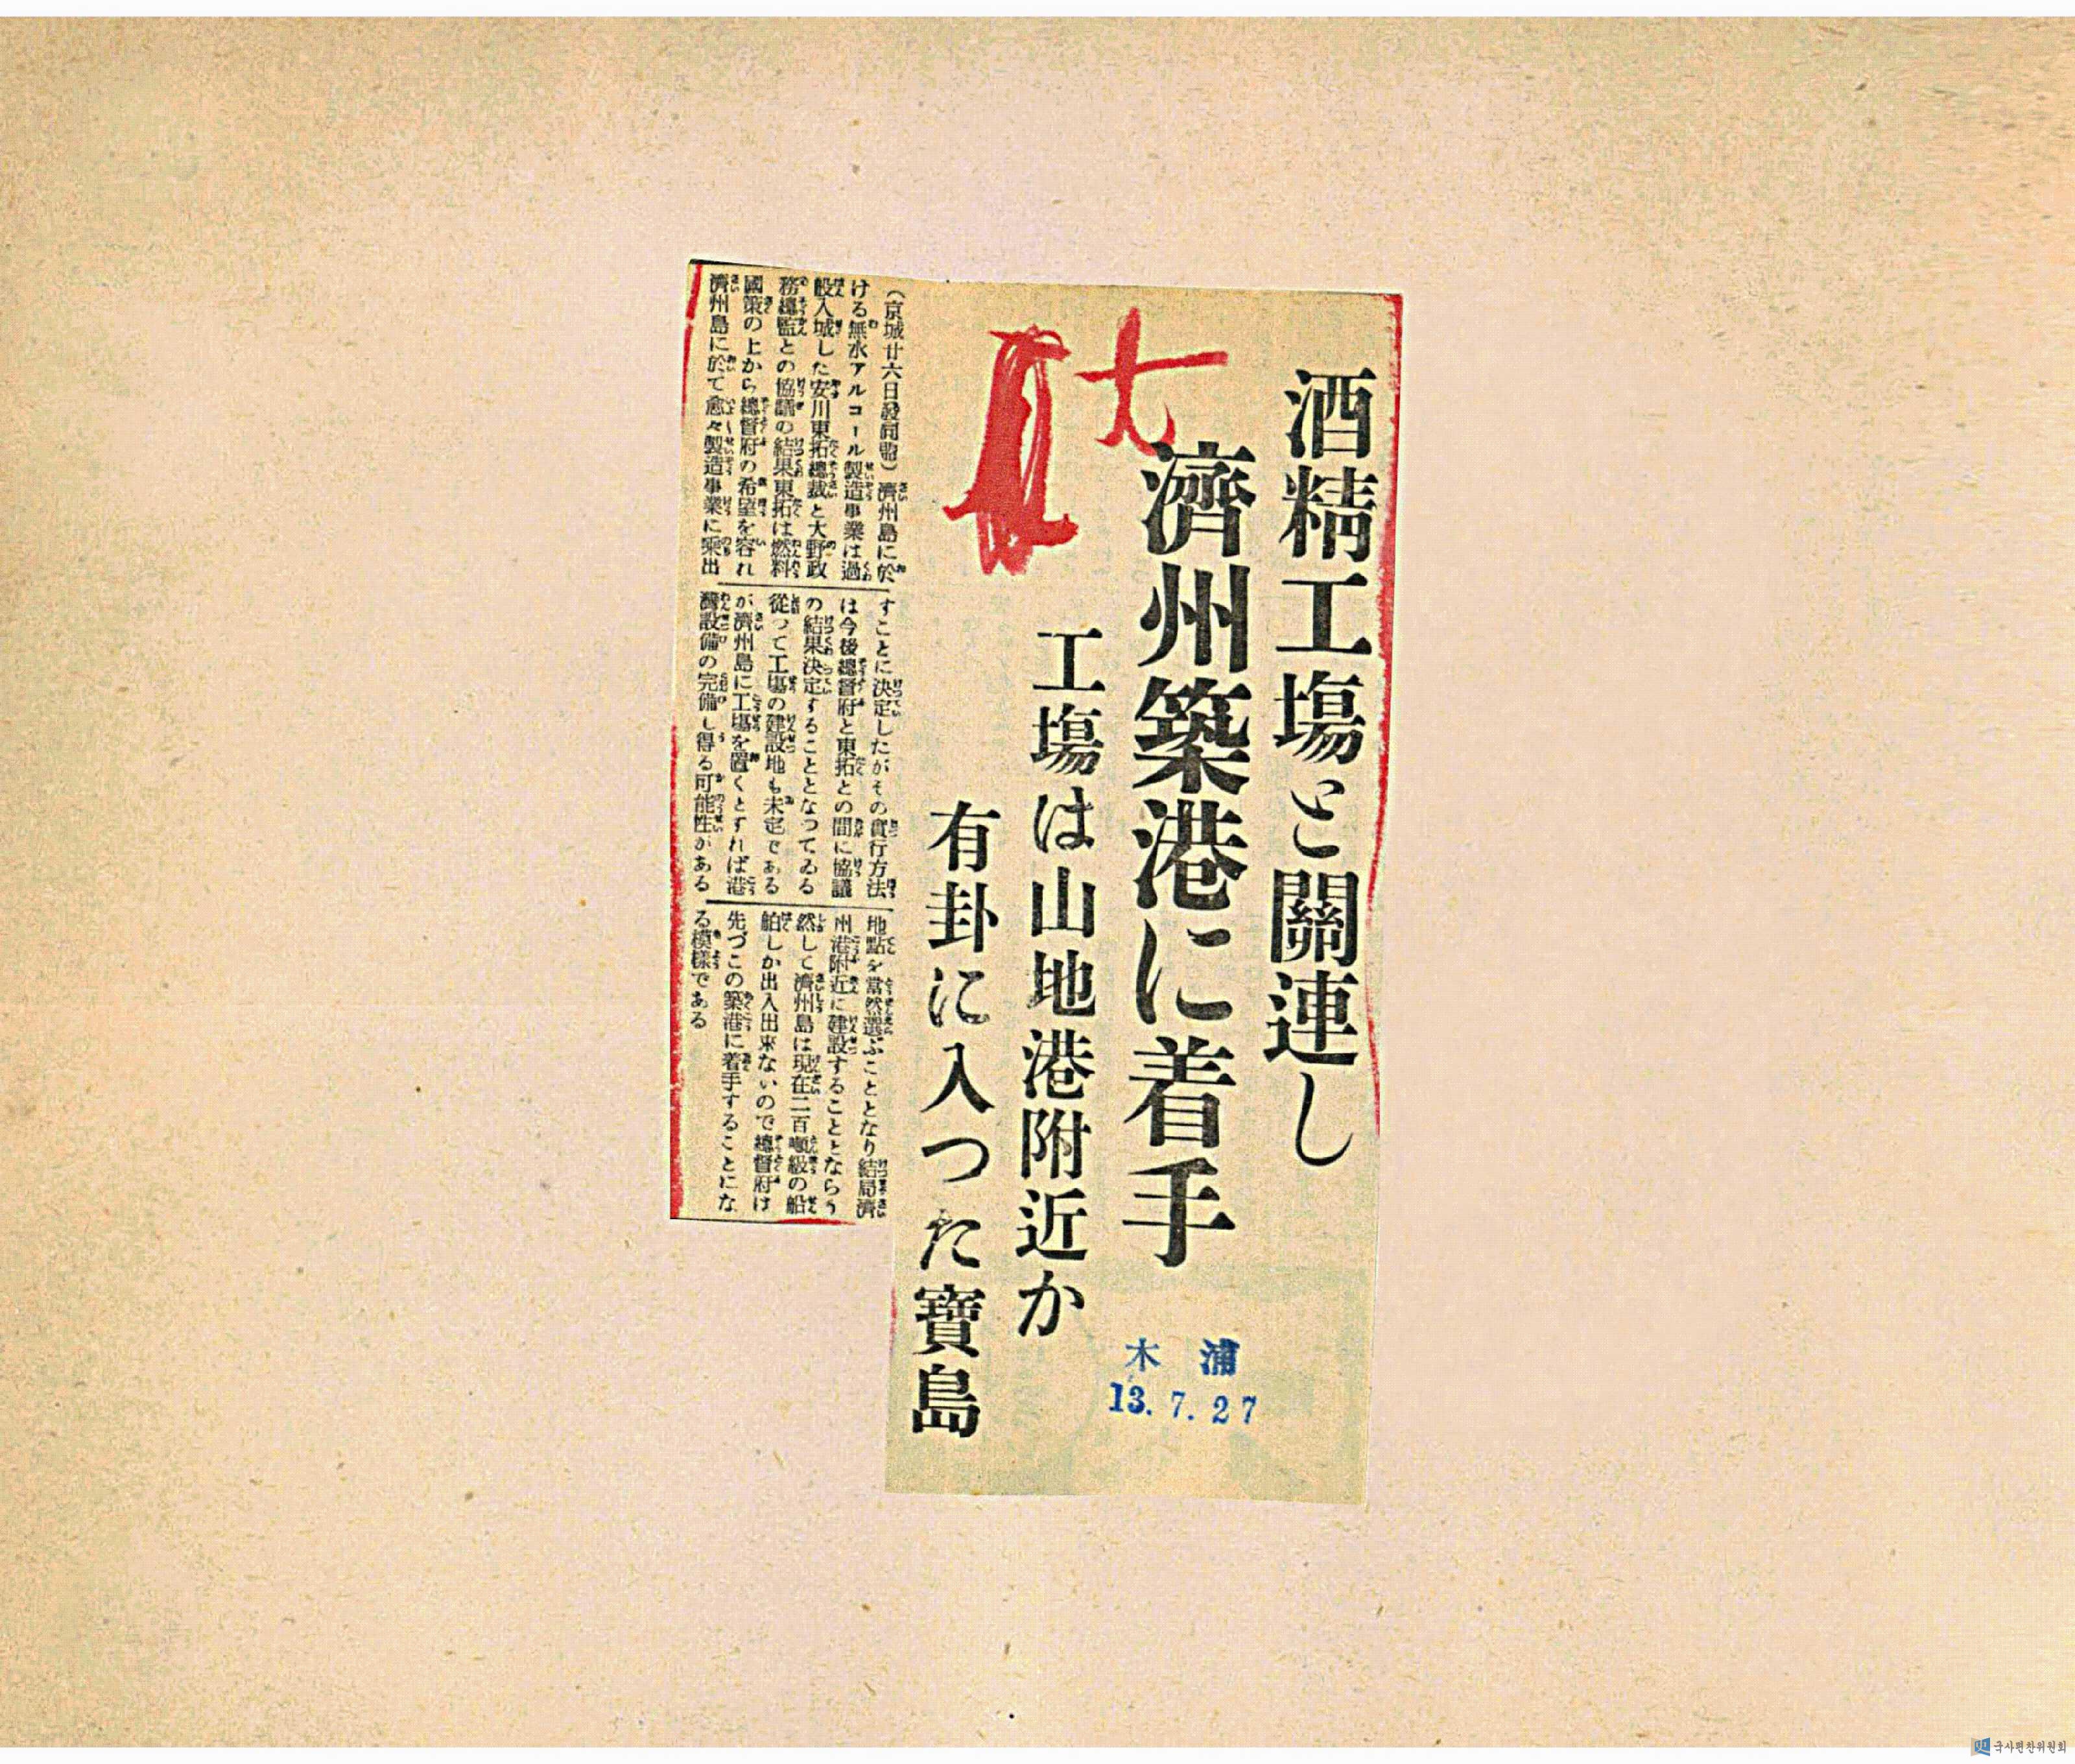 酒精工塲と關連し
濟州築港に着手
工塲は山地港附近か
有卦に入つた寶島
七
木浦
13.7.27
(京城廿六日發同盟)濟州島に於
ける無水アルコール製造事業は過
般入城した安川東拓總裁と大野政
務總監との協議の結果東拓は燃料
國策の上から總督府の希望を容れ
濟州島に於て愈々製造事業に乘出
すことに決定したがその實行方法
は今後總督府と東拓との間に協議
の結果決定することとなつてゐる
從つて工塲の建設地も未定である
が濟州島に工塲を置くとすれば港
灣設備の完備し得る可能性がある
地點を當然選ぶこととなり結局濟
州港附近に建設することとならう
然して濟州島は現在二百噸級の船
舶しか出入出來ないので總督府は
先づこの築港に着手することにな
る模樣である
국사편찬위원회